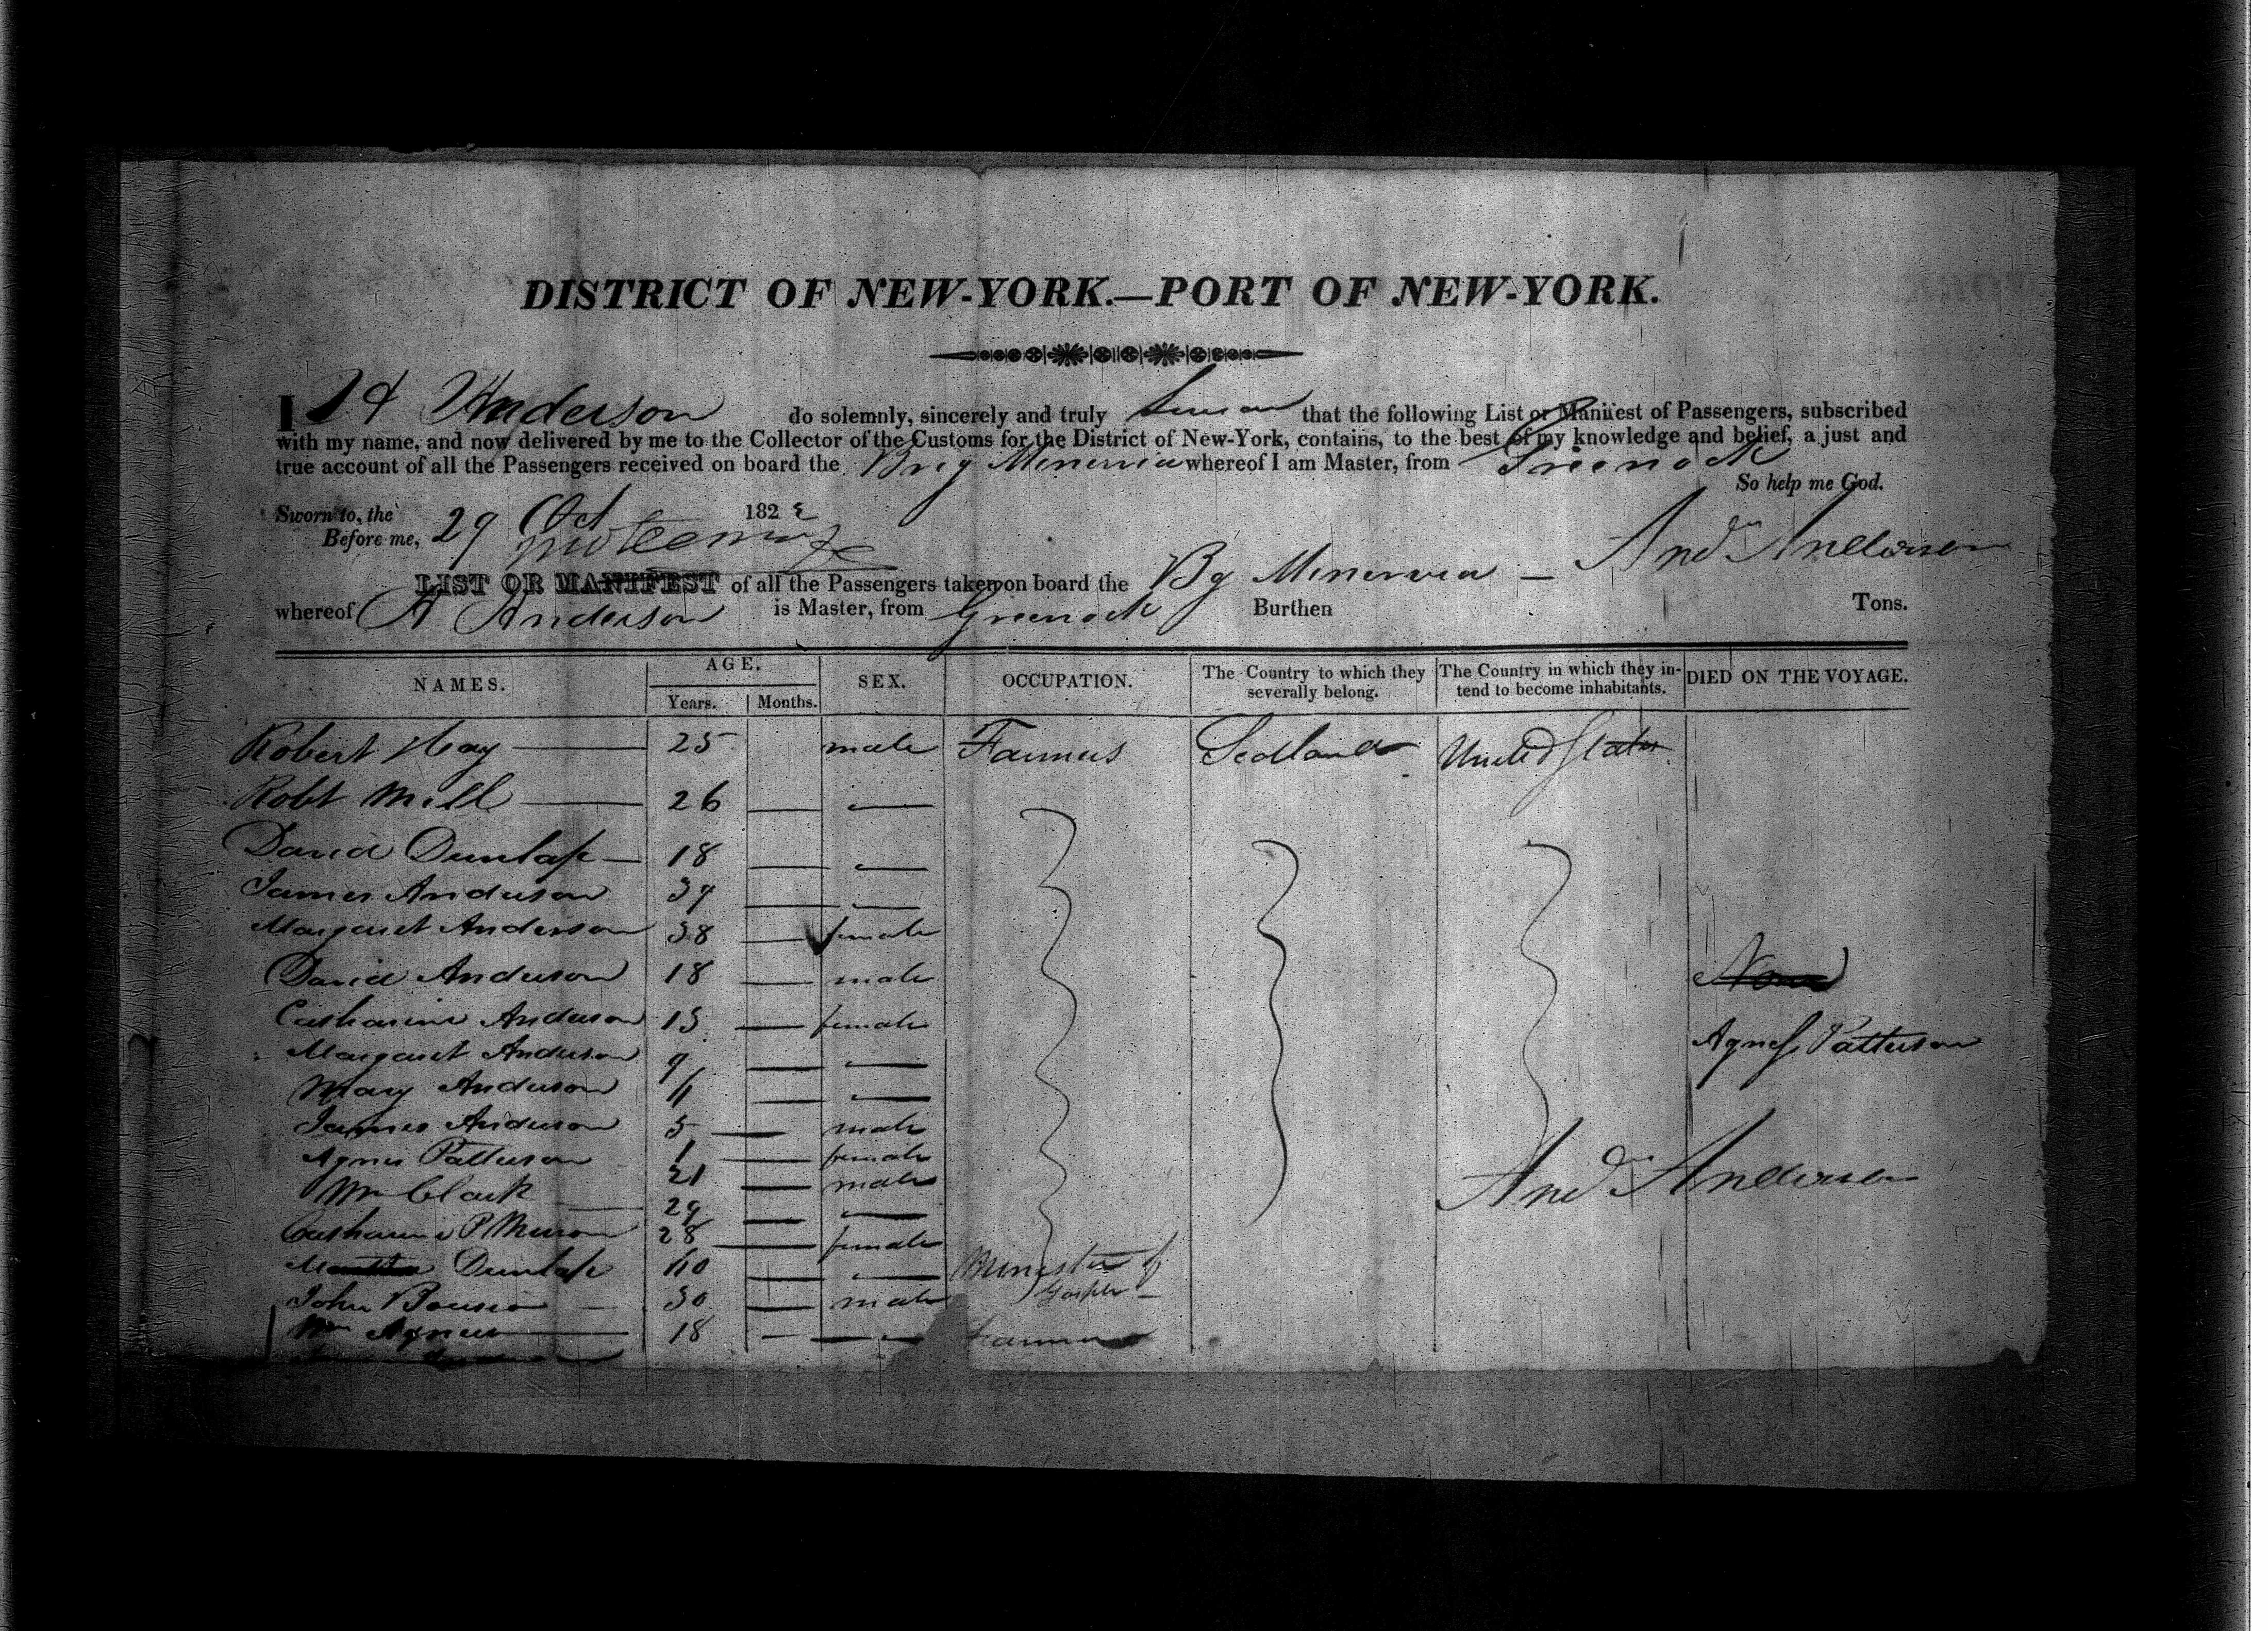 DISTRICT OF NEW-YORK.—PORT OF NEW-YORK.
I A Anderson do solemnly, sincerely and truly swear that the following List or Manifest of Passengers, subscribed
with my name, and now delivered by me to the Collector of the Customs for the District of New-York, contains, to the best of my knowledge and belief, a just and
true account of all the Passengers received on board the Brig Minerva whereof I am Master, from Greenock
So help me God.
Sworn to, the 29 Oct 182
Before me,
Andw Anderson
LIST OR MANIFEST of all the Passengers taken on board the Bg Minerva —
whereof A Anderson is Master, from Greenock Burthen Tons.
NAMES. AGE. SEX. OCCUPATION. The Country to which they severally belong. The Country in which they intend to become inhabitants. DIED ON THE VOYAGE.
Years. Months.
Robert Hay 25 male Farmers Scotland United States
Robt Mill 26
David Dunlap 18
James Anderson 39
Margaret Anderson 38 female
David Anderson 18 male
Catharine Anderson 13 female
Agness Patterson
Margaret Anderson 9
Mary Anderson 11
James Anderson 5 male
Agnes Patterson 1 female
Wm Clark 21 male
29
Catharine P 28 female
Dunlap 40 Minister of
Gospel
John 30 male
Wm Agnew 18 Farmer
Andw Anderson